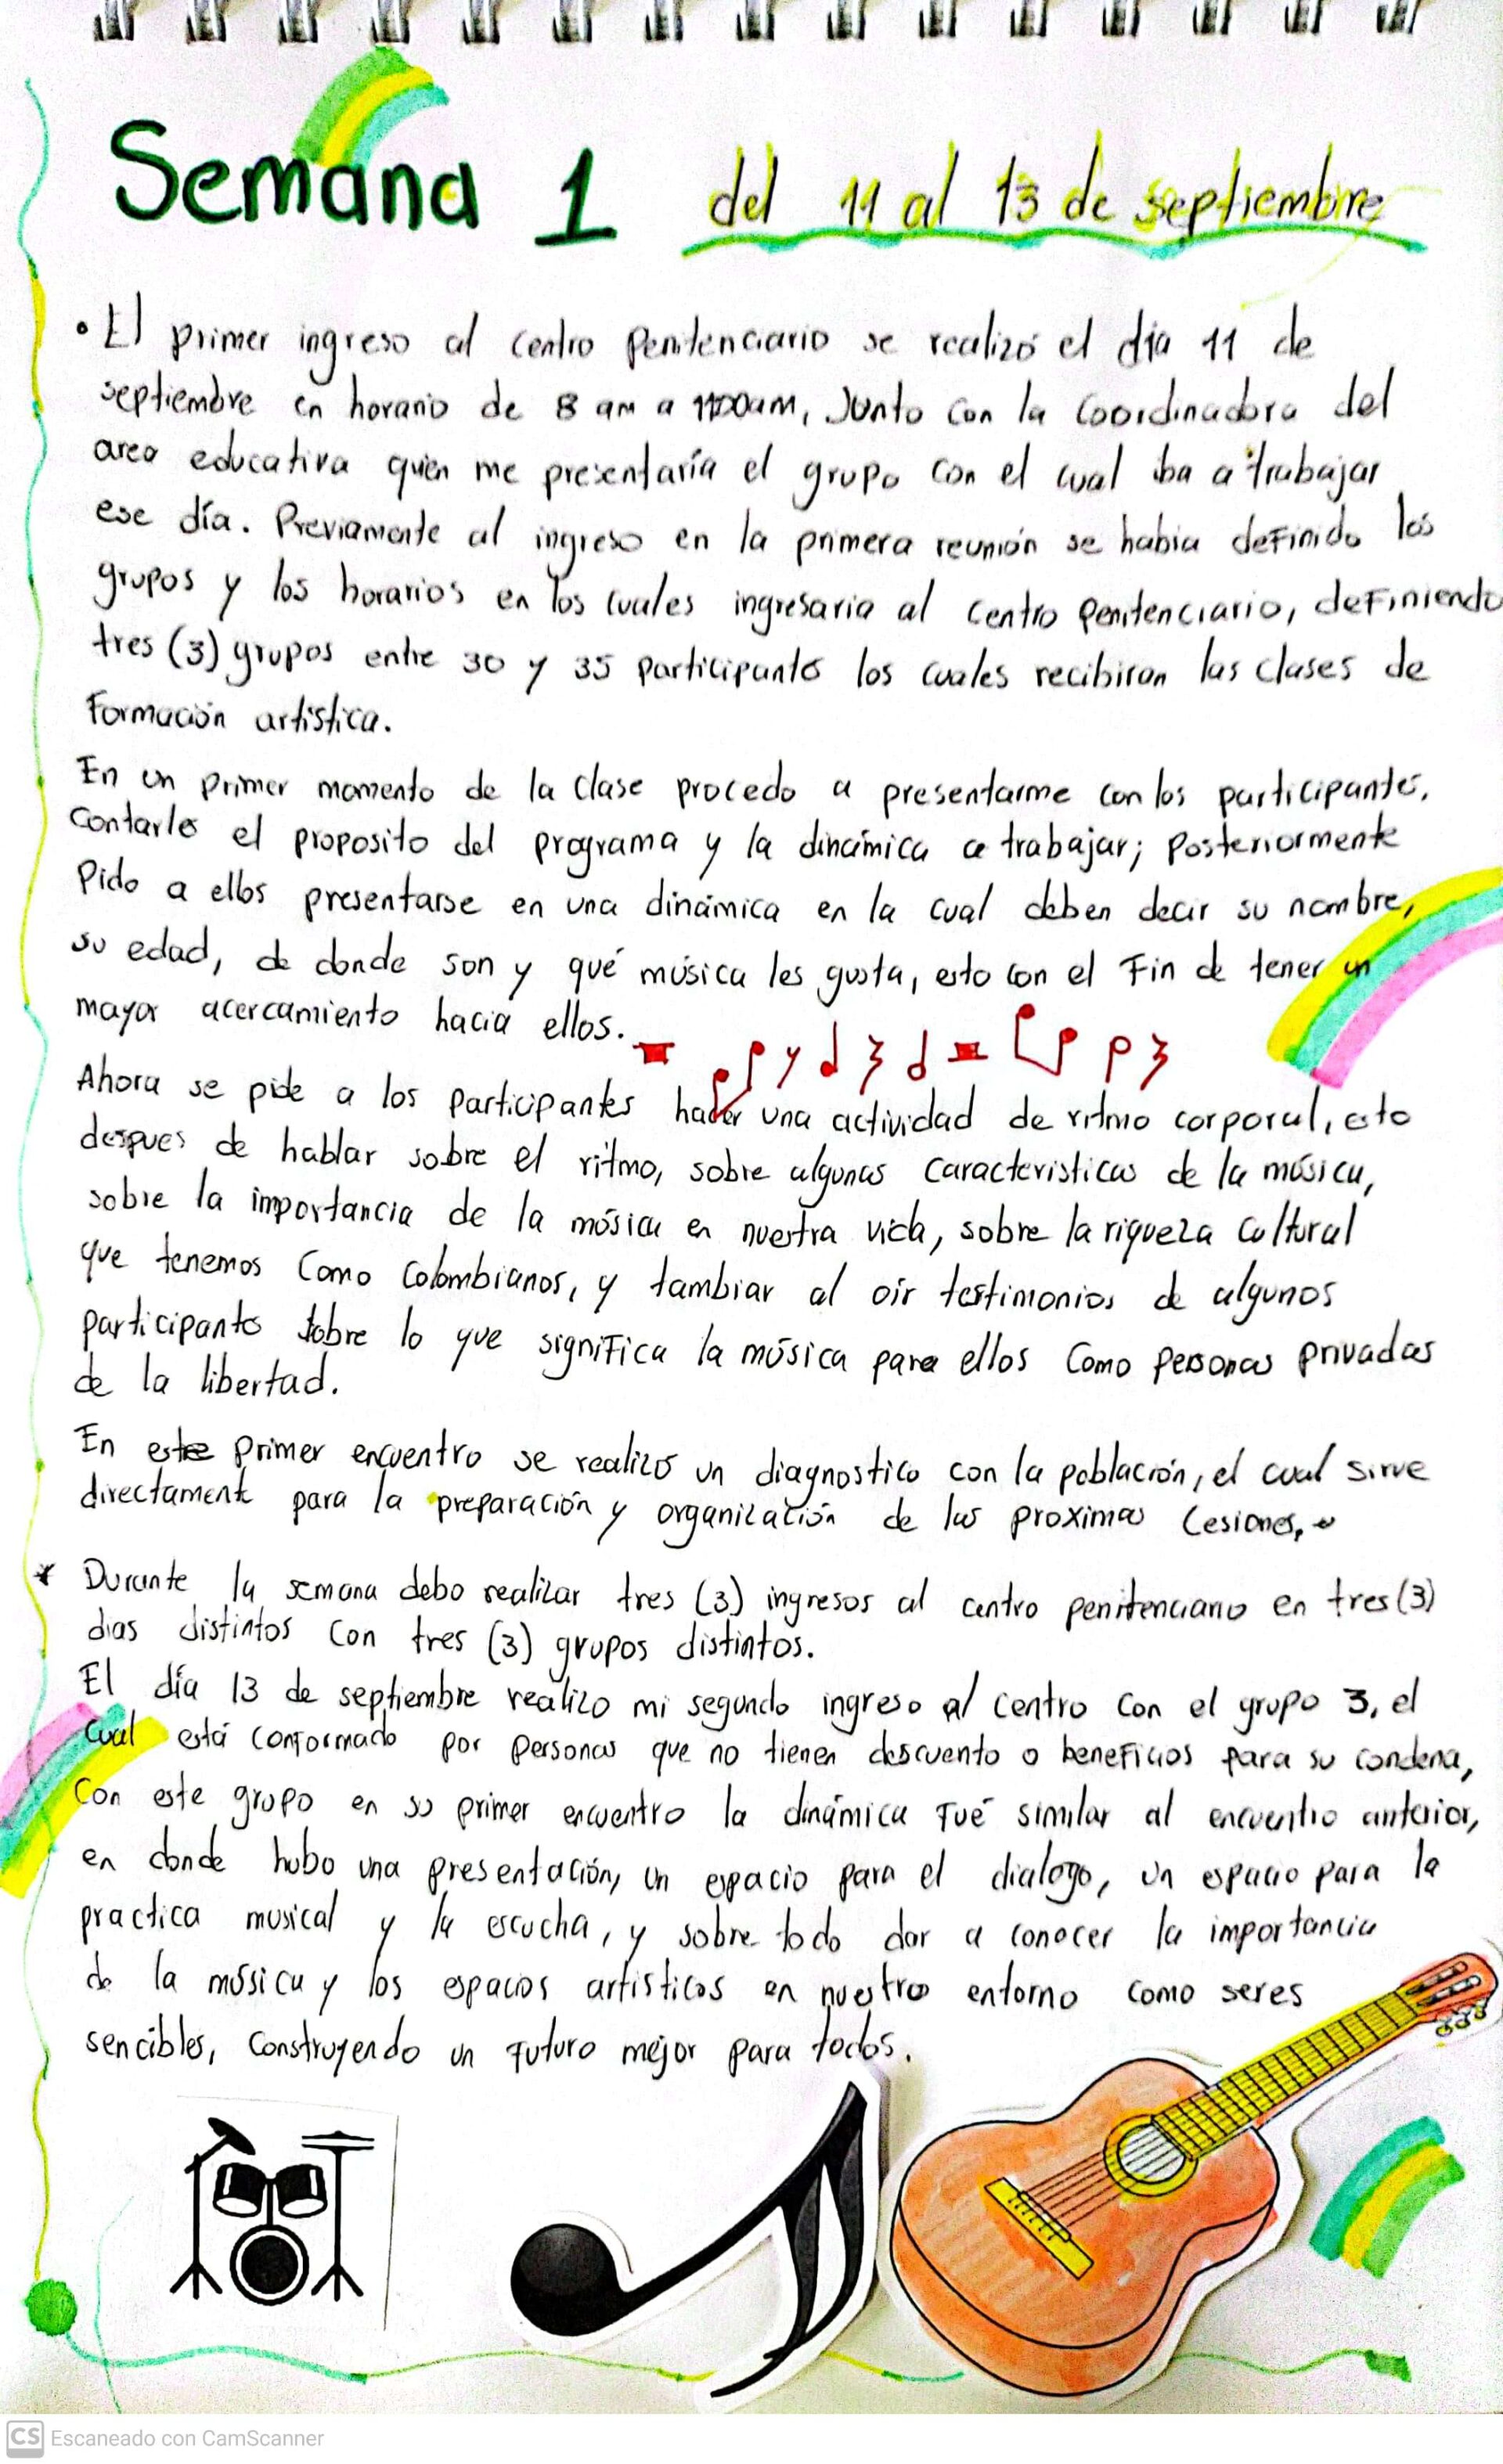 Semana 1 del 11 al 13 de septiembre
• El primer ingreso al centro Penitenciario se realizó el día 11 de
septiembre en horario de 8 am a 11:00am, Junto con la Coordinadora del
area educativa quien me presentaría el grupo con el cual iba a trabajar
ese día. Previamente al ingreso en la primera reunión se habia definido los
grupos y los horarios en los cuales ingresaria al centro Penitenciario, definiendo
tres (3) grupos entre 30 y 35 participantes los cuales recibiran las clases de
Formación artística.
En un primer momento de la clase procedo a presentarme con los participantes,
contarles el proposito del programa y la dinámica a trabajar; Posteriormente
Pido a ellos presentarse en una dinámica en la cual deben decir su nombre,
su edad, de donde son y qué música les gusta, esto con el Fin de tener un
mayor acercamiento hacia ellos.
Ahora se pide a los participantes hacer una actividad de ritmo corporal, esto
despues de hablar sobre el ritmo, sobre algunas caracteristicas de la música,
sobre la importancia de la música en nuestra vida, sobre la riqueza Cultural
que tenemos Como Colombianos, y tambiar al oir testimonios de algunos
participantes sobre lo que significa la música para ellos Como Personas privadas
de la libertad.
En este primer encuentro se realizó un diagnostico con la población, el cual sirve
directamente para la preparación y organización de las proximas Cesiones,
* Durante la semana debo realizar tres (3) ingresos al centro penitenciario en tres (3)
dias distintos Con tres (3) grupos distintos.
El día 13 de septiembre realizo mi segundo ingreso al centro Con el grupo 3, el
cual está conformado por personas que no tienen descuento o beneficios para su condena,
Con este grupo en su primer encuentro la dinámica Fué similar al encuentro anterior,
en donde hubo una presentación, un espacio para el dialogo, un espacio para la
practica musical y la escucha, y sobre todo dar a conocer la importancia
de la música y los espacios artisticos en nuestro entorno como seres
sencibles, Construyendo un Futuro mejor para todos.
CS Escaneado con CamScanner